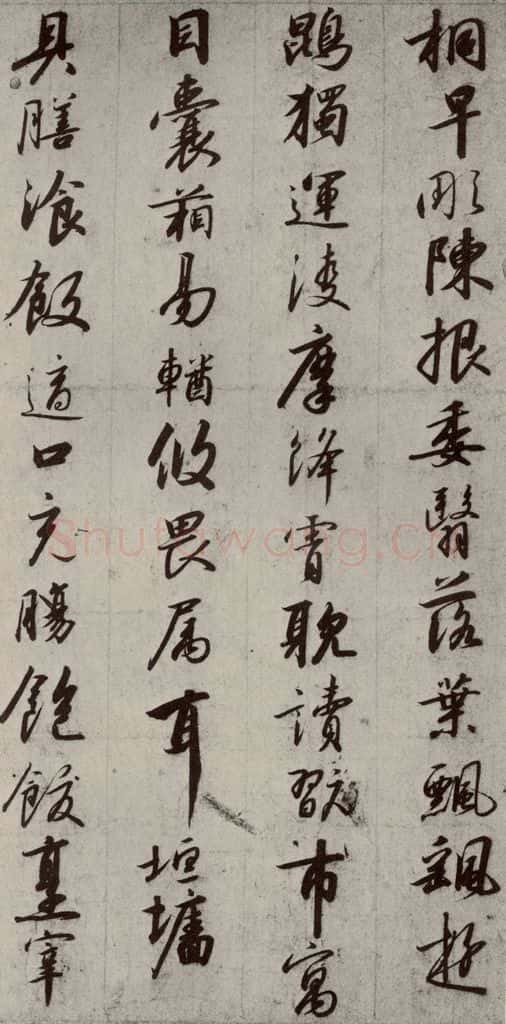 桐早彫陳根委翳落葉飄颻遊
鵾獨運淩摩絳霄耽讀翫市寓
目囊箱易輶攸畏属耳垣墻
具膳湌飯適口充膓飽飫烹宰
Shufawang.cn